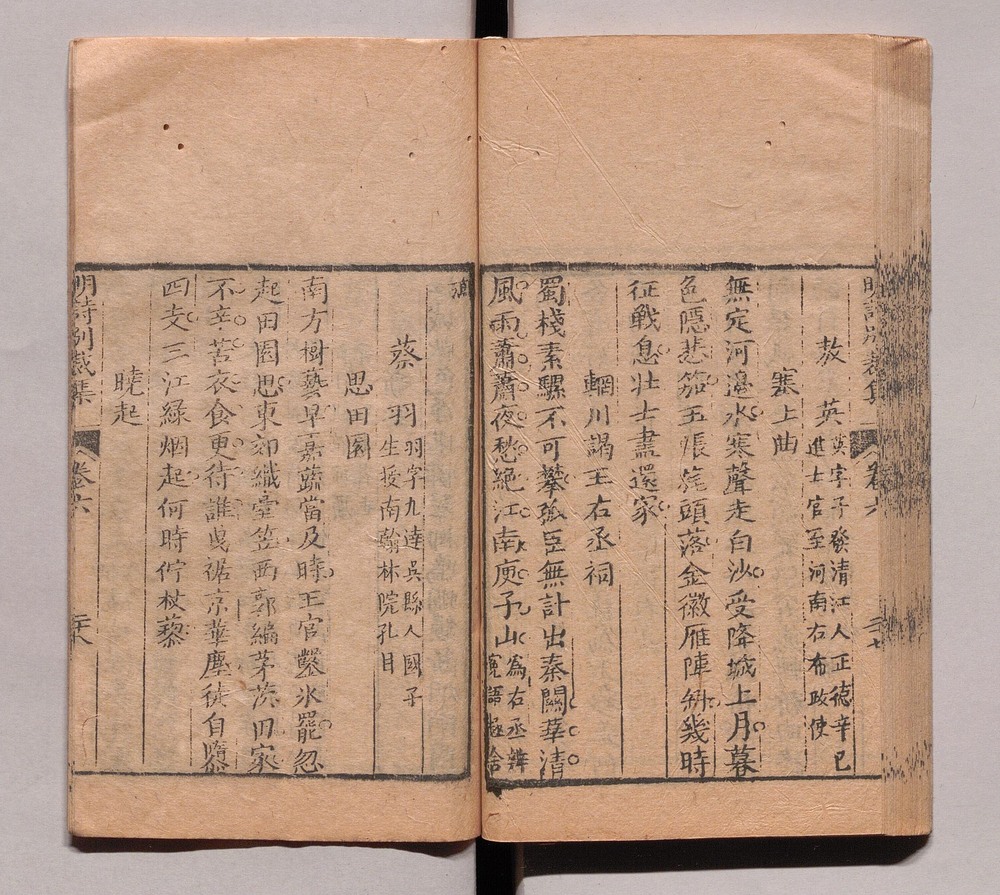 明詩別裁集 卷六 三十七
敖 英 英字子發清江人正德辛巳
進士官至河南右布政使
塞上曲
無定河邊水寒聲走白沙受降城上月暮
色隱悲笳玉帳旄頭落金徽雁陣斜幾時
征戰息壯士盡還家
輞川謁王右丞祠
蜀棧秦騾不可攀孤臣無計出秦關華清
風雨蕭蕭夜愁絕江南庾子山 為右丞辨
冤語極含
蔡 羽 羽字九逵吳縣人國子
生授南翰林院孔目
思田園
南方樹藝早嘉蔬當及時王官鑿氷罷忽
起田園思東郊織臺笠西郭編茅茨田家
不辛苦衣食更待誰曳裾京華塵徒自隳
四支三江綠烟起何時佇杖藜
曉起
明詩別裁集 卷六 三十八